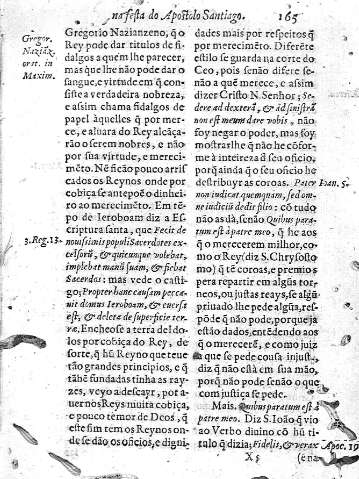 na festa do Apostolo Santiago. 165
Gregor.
Naziãz.
orat. in
Maxim.
Gregorio Nazianzeno, q̃ o
Rey pode dar titulos de fi-
dalgos a quem lhe parecer,
mas que lhe não pode dar o
sangue, e virtude em q̃ con-
siste a verdadeira nobreza,
e assim chama fidalgos de
papel àquelles q̃ por mer-
ce, e aluara do Rey alcãça-
rão o serem nobres, e não
por sua virtude, e mereci-
mẽto. Nẽ ficão pouco arris
cados os Reynos onde por
cobiça se antepoẽ o dinhei-
ro ao merecimento. Em tẽ-
po de Ieroboam diz a Es-
criptura santa, que Fecit de
3. Reg. 13.
nouissimis populi Sacerdotes ex-
celsorũ, & quicunque volebat,
implebat manũ suam, & fiebat
Sacerdos: mas vede o casti-
go; Propter hanc causam pecca-
uit domus Ieroboam, & euersa
est, & deleta de superficie ter-
ræ. Encheose a terra de Ido-
los por cobiça do Rey, de
sorte, q̃ hũ Reyno que teue
tão grandes principios, e q̃
tãbẽ fundadas tinha as ray-
zes, veyo a descayr, por a-
uer nos Reys muita cobiça,
e pouco temor de Deos, q̃
este fim tem os Reynos on-
de se dão os oficios, e digni-
dades mais por respeitos q̃
por merecimẽto. Diferẽte
estilo se guarda na corte do
Ceo, pois senão difere se-
não a quẽ merece, q̃ assim
diz Cristo N. Senhor; Se-
dere ad dexterã, & ad sinistrã
non est meum dare vobis, não
soy negar o poder, mas soy
mostrarlhe q̃ não he cõfor-
me à inteireza d̃ seu oficio,
porq̃ ainda q̃ o seu oficio he
destribuyr as coroas. Pater Ioan. 5.
non iudicat quemquam, sed om-
ne iudiciũ dedit filio: cõ tudo
não as dà, senão Quibus para-
tum est à patre meo, q̃ he aos
q̃ o merecerem milhor, e q̃
mo o Rey (diz S. Chrysosto
mo) q̃ tẽ coroas, e premios
pera repartir em algũs tor-
neos, ou justas reays, se algũ
priuado lhe pede algũa, res-
põde q̃ não pode, porque ja
estão dados, entẽdendo aos
q̃ o merecerẽ, e como juiz
que se pede cousa injusta,
diz q̃ não està em sua mão,
porq̃ não pode senão o que
com justiça se pede.
Mais. Quibus paratum est à
patre meo. Diz S. Ioão q̃ vio
ao Verbo diuino cõ hũ ti-
tulo q̃ dizia; Fidelis, & verax Apoc. 19
X 5
(e na